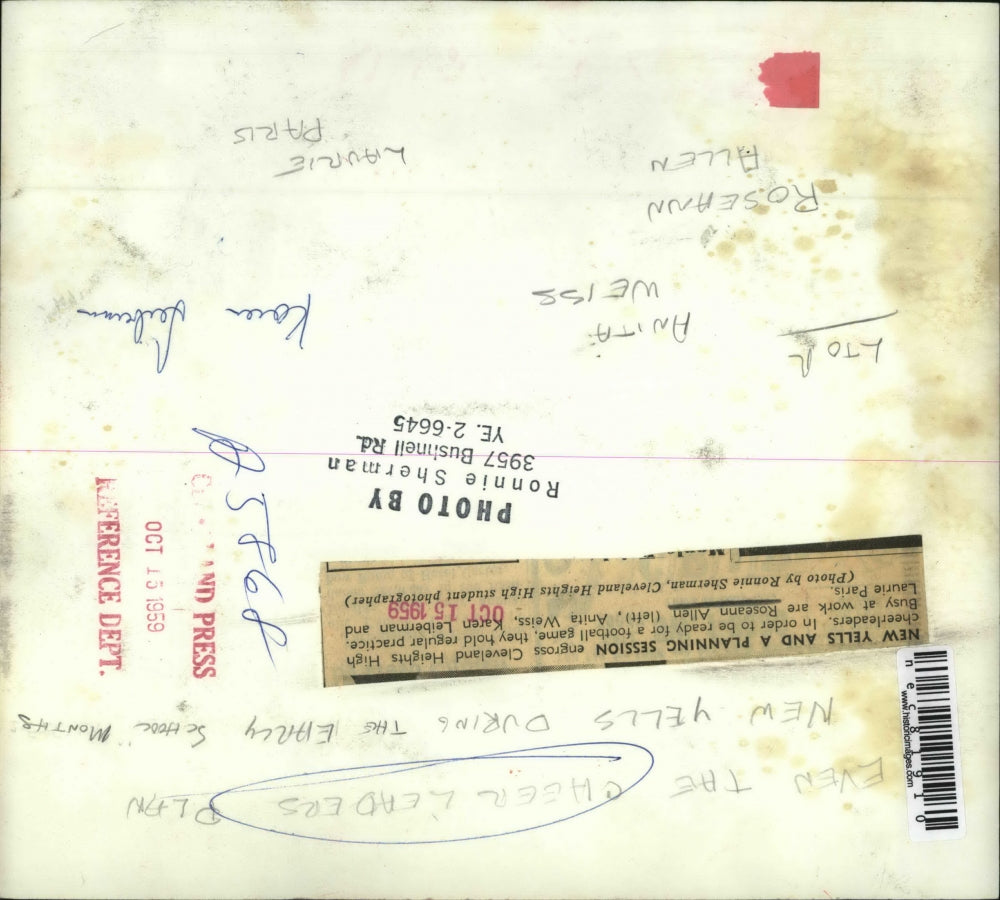 EVEN THE CHEER LEADERS PLAN
NEW YELLS DURING THE EARLY SCHOOL MONTHS
NEW YELLS AND A PLANNING SESSION engross Cleveland Heights High
cheerleaders. In order to be ready for a football game, they hold regular practice.
Busy at work are Roseann Allen (left), Anita Weiss, Karen Leiberman and
Laurie Paris.
(Photo by Ronnie Sherman, Cleveland Heights High student photographer)
OCT 15 1959
PHOTO BY
Ronnie Sherman
3957 Bushnell Rd.
YE. 2-6645
L TO R
ANITA
WEISS
Karen
ROSEANN
ALLEN
LAURIE
PARIS
AND PRESS
OCT 15 1959
REFERENCE DEPT.
5868
www.historicimages.com
nec81910